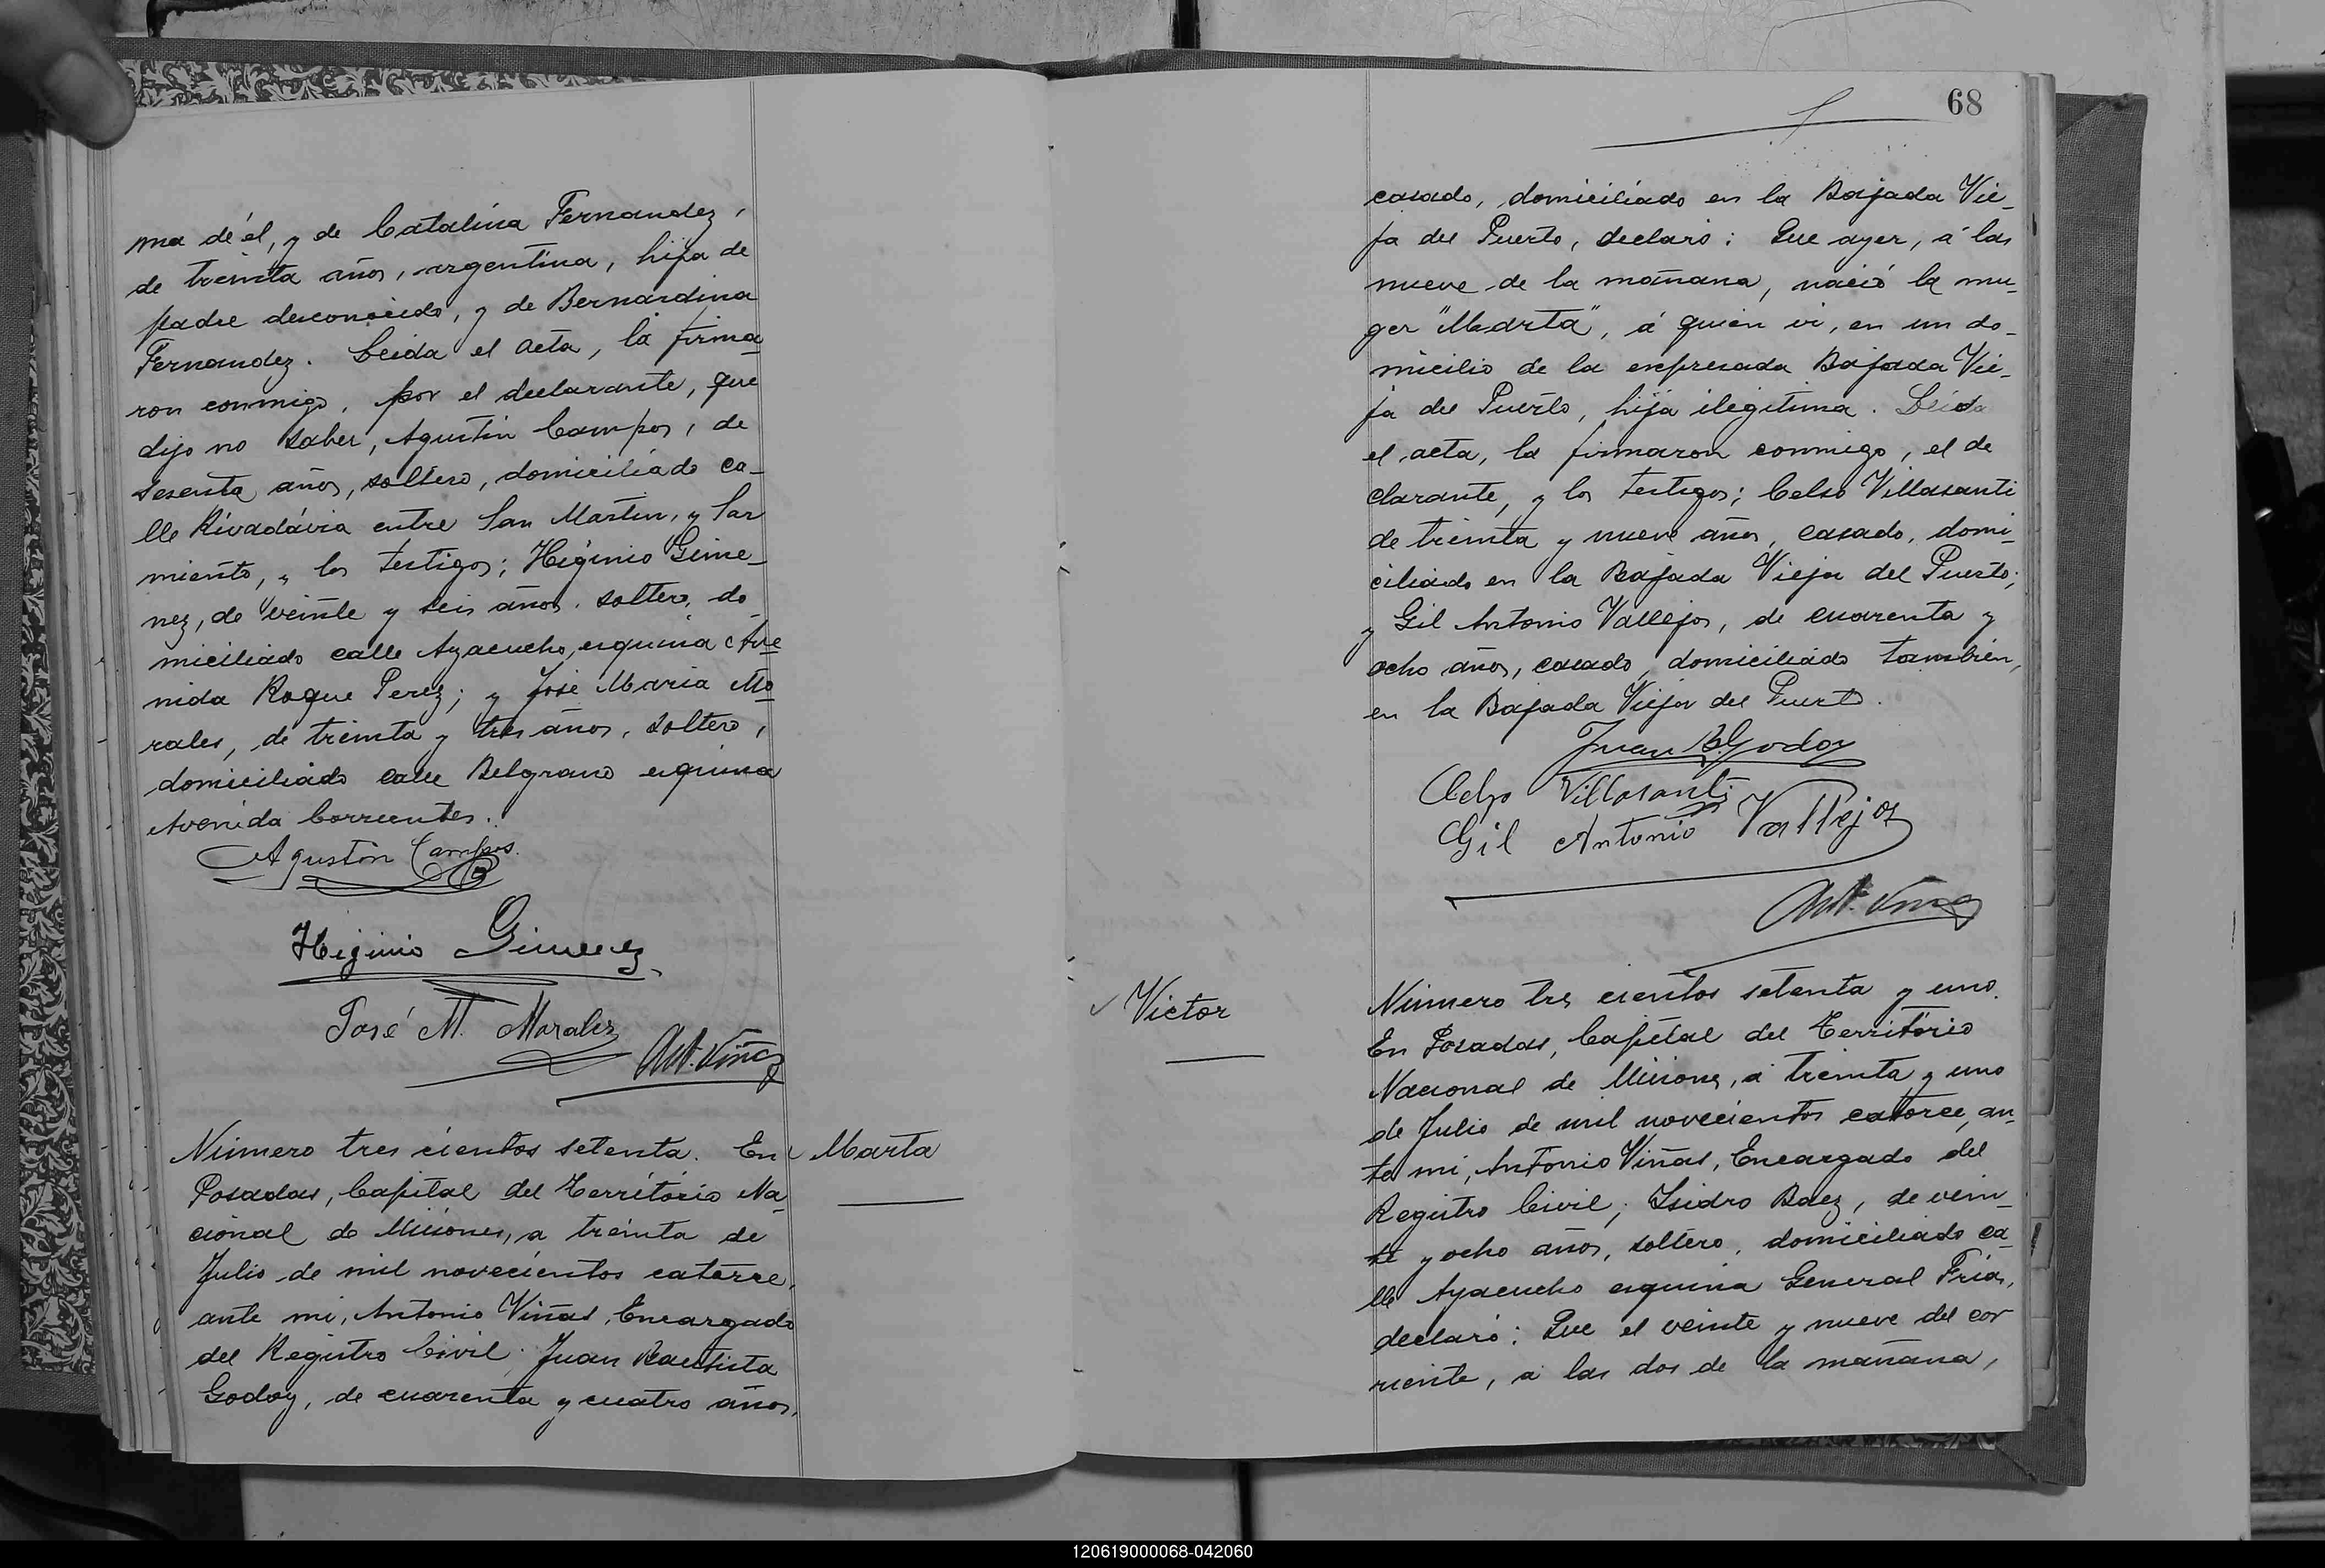 ma de él, y de Catalina Fernandez,
de treinta años, argentina, hija de
padre desconocido, y de Bernardina
Fernandez. Leida el acta, la firma_
ron conmigo, por el declarante, que
dijo no saber, Agustin Campos, de
sesenta años, soltero, domiciliado ca_
lle Rivadávia entre San Martin, y Sar
miento, y los testigos; Higinio Gime_
nez, de veinte y seis años, soltero, do_
miciliado calle Ayacucho, esquina Ave
nida Roque Perez; y José Maria Mo
rales, de treinta y tres años, soltero,
domiciliado calle Belgrano esquina
Avenida Corrientes.
Agustin Campos
Higinio Gimenez
José M. Morales
Ant. Viñas
Número tres cientos setenta. En
Marta
Posadas, Capital del Território Na_
cional de Misiones, a treinta de
Julio de mil novecientos catorce,
ante mi, Antonio Viñas, Encargado
del Registro Civil; Juan Bautista
Godoy, de cuarenta y cuatro años,
68
casado, domiciliado en la Bajada Vie_
ja del Puerto, declaró: Que ayer, á las
nueve de la mañana, nació la mu_
ger "Marta", á quien vi, en un do_
micilio de la expresada Bajada Vie_
ja del Puerto, hija ilegitima. Leida
el acta, la firmaron conmigo, el de
clarante, y los testigos; Celso Villasanti
de treinta y nueve años, casado, domi_
ciliado en la Bajada Vieja del Puerto;
y Gil Antonio Vallejos, de cuarenta y
ocho años, casado, domiciliado tambien,
en la Bajada Vieja del Puerto.
Juan B. Godoy
Celso Villasanti
Gil Antonio Vallejos
Ant. Viñas
Victor
Número tres cientos setenta y uno.
En Posadas, Capital del Território
Nacional de Misiones, á treinta y uno
de Julio de mil novecientos catorce, an_
te mi, Antonio Viñas, Encargado del
Registro Civil; Isidro Baez, de vein_
te y ocho años, soltero, domiciliado ca_
lle Ayacucho esquina General Frias,
declaró: Que el veinte y nueve del cor
riente, á las dos de la mañana,
120619000068-042060